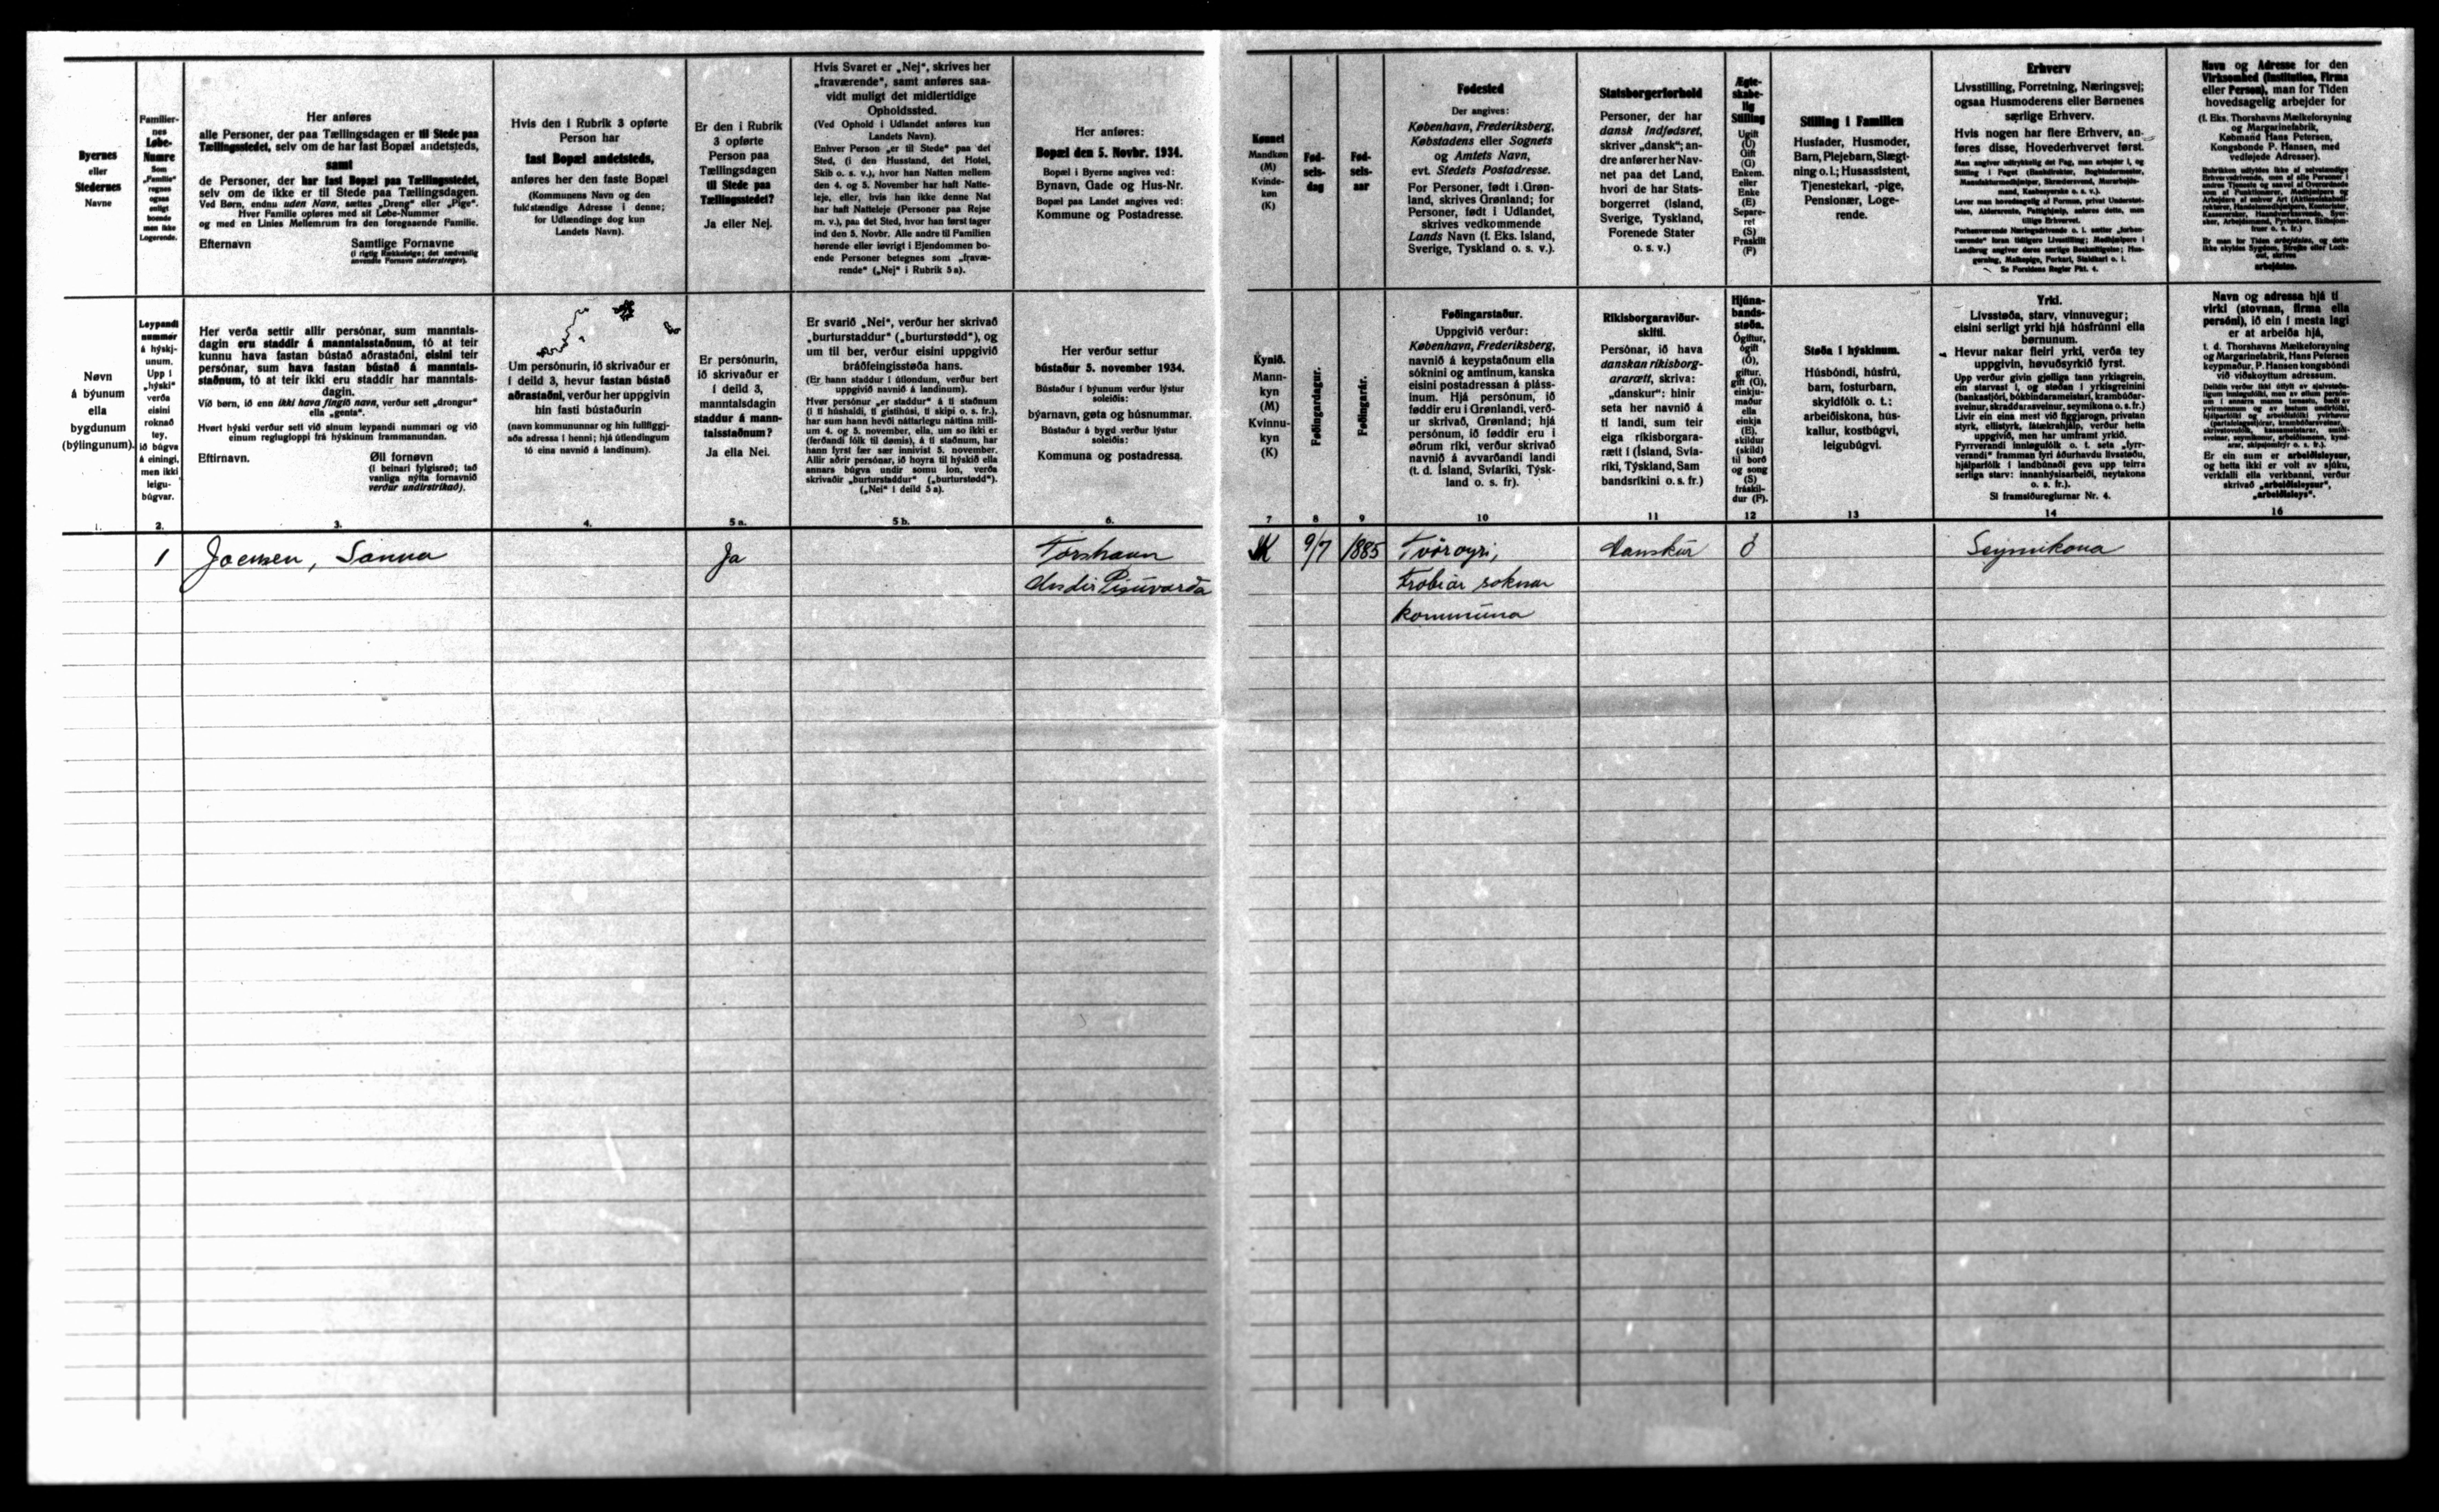 Byernes
eller
Stedernes
Navne
Familier-
nes
Løbe-
Numre
Som
„Familie“
regnes
ogsaa
enligt
boende
men ikke
Logerende.
Her anføres
alle Personer, der paa Tællingsdagen er til Stede paa
Tællingsstedet, selv om de har fast Bopæl andetsteds,
samt
de Personer, der har fast Bopæl paa Tællingsstedet,
selv om de ikke er til Stede paa Tællingsdagen.
Ved Børn, endnu uden Navn, sættes „Dreng“ eller „Pige“.
Hver Familie opføres med sit Løbe-Nummer
og med en Linies Mellemrum fra den foregaaende Familie.
Efternavn
Samtlige Fornavne
(i rigtig Rækkefølge; det sædvanlig
anvendte Fornavn understreges).
Hvis den i Rubrik 3 opførte
Person har
fast Bopæl andetsteds,
anføres her den faste Bopæl
(Kommunens Navn og den
fuldstændige Adresse i denne;
for Udlændinge dog kun
Landets Navn).
Er den i Rubrik
3 opførte
Person paa
Tællingsdagen
til Stede paa
Tællingsstedet?
Ja eller Nej.
Hvis Svaret er „Nej“, skrives her
„fraværende“, samt anføres saa-
vidt muligt det midlertidige
Opholdssted.
(Ved Ophold i Udlandet anføres kun
Landets Navn).
Enhver Person „er til Stede“ paa det
Sted, (i den Husstand, det Hotel,
Skib o. s. v.), hvor han Natten mellem
den 4. og 5. November har haft Natte-
leje, eller, hvis han ikke denne Nat
har haft Natteleje (Personer paa Rejse
m. v.), paa det Sted, hvor han først tager
ind den 5. Novbr. Alle andre til Familien
hørende eller iøvrigt i Ejendommen bo-
ende Personer betegnes som „fravæ-
rende“ („Nej“ i Rubrik 5 a).
Her anføres:
Bopæl den 5. Novbr. 1934.
Bopæl i Byerne angives ved:
Bynavn, Gade og Hus-Nr.
Bopæl paa Landet angives ved:
Kommune og Postadresse.
Kønnet
Mandkøn
(M)
Kvinde-
køn
(K)
Fød-
sels-
dag
Fød-
sels-
aar
Fødested
Der angives:
København, Frederiksberg,
Købstadens eller Sognets
og Amtets Navn,
evt. Stedets Postadresse.
For Personer, født i Grøn-
land, skrives Grønland; for
Personer, født i Udlandet,
skrives vedkommende
Lands Navn (f. Eks. Island,
Sverige, Tyskland o. s. v.).
Statsborgerforhold
Personer, der har
dansk Indfødsret,
skriver „dansk“; an-
dre anfører her Nav-
net paa det Land,
hvori de har Stats-
borgerret (Island,
Sverige, Tyskland,
Forenede Stater
o. s. v.)
Ægte-
skabe-
lig
Stilling
Ugift
(U)
Gift
(G)
Enkem.
eller
Enke
(E)
Separe-
ret
(S)
Fraskilt
(F)
Stilling i Familien
Husfader, Husmoder,
Barn, Plejebarn, Slægt-
ning o. l.; Husassistent,
Tjenestekarl, -pige,
Pensionær, Loge-
rende.
Erhverv
Livsstilling, Forretning, Næringsvej;
ogsaa Husmoderens eller Børnenes
særlige Erhverv.
Hvis nogen har flere Erhverv, an-
føres disse, Hovederhvervet først.
Se Forsidens Regler Pkt. 4.
Navn og Adresse for den
Virksomhed (Institution, Firma
eller Person), man for Tiden
hovedsagelig arbejder for
(f. Eks. Thorshavns Mælkeforsyning
og Margarinefabrik,
Købmand Hans Petersen,
Kongsbonde P. Hansen, med
vedføjede Adresser).
arbejdsløs.
Nøvn
á býunum
ella
bygdunum
(býlingunum).
Leypandi
nummer
á hýskj-
unum.
Upp í
„hýski“
verða
eisini
roknað
tey,
ið búgva
á einingi,
men ikki
leigu-
búgvar.
Her verða settir allir persónar, sum manntals-
dagin eru staddir á manntalsstaðnum, tó at teir
kunnu hava fastan bústað aðrastaðni, eisini teir
persónar, sum hava fastan bústað á manntals-
staðnum, tó at teir ikki eru staddir har manntals-
dagin.
Við børn, ið enn ikki hava fingið navn, verður sett „drongur“
ella „genta“.
Hvørt hýski verður sett við sínum leypandi nummari og við
einum regluglopi frá hýskinum frammanundan.
Eftirnavn.
Øll fornøvn
(í beinari fylgisrøð; tað
vanliga nýtta fornavnið
verður undirstrikað).
Um persónurin, ið skrivaður er
í deild 3, hevur fastan bústað
aðrastaðni, verður her uppgivin
hin fasti bústaðurin
(navn kommununnar og hin fullfiggj-
aða adressa í henni; hjá útlendingum
tó eina navnið á landinum).
Er persónurin,
ið skrivaður er
í deild 3,
manntalsdagin
staddur á mann-
talsstaðnum?
Ja ella Nei.
Er svarið „Nei“, verður her skrivað
„burturstaddur“ („burturstødd“), og
um til ber, verður eisini uppgivið
bráðfeingisstøða hans.
(Er hann staddur í útlondum, verður bert
uppgivið navnið á landinum).
Hvør persónur „er staddur“ á tí staðnum
(í tí húshaldi, tí gistihúsi, tí skipi o. s. fr.),
har sum hann hevði náttarlegu náttina mill-
um 4. og 5. november, ella, um so ikki er
(ferðandi fólk til dømis), á tí staðnum, har
hann fyrst fær sær innivist 5. november.
Allir aðrir persónar, ið hoyra til hýskið ella
annars búgva undir somu lon, verða
skrivaðir „burturstaddur“ („burturstødd“).
(„Nei“ í deild 5 a).
Her verður settur
bústaður 5. november 1934.
Bústaður í býunum verður lýstur
soleiðis:
býarnavn, gøta og húsnummar.
Bústaður á bygd verður lýstur
soleiðis:
Kommuna og postadressa.
Kynið.
Mann-
kyn
(M)
Kvinnu-
kyn
(K)
Føðingardagur.
Føðingarár.
Føðingarstaður.
Uppgivið verður:
København, Frederiksberg,
navnið á keypstaðnum ella
sóknini og amtinum, kanska
eisini postadressan á pláss-
inum. Hjá persónum, ið
føddir eru í Grønlandi, verð-
ur skrivað, Grønland; hjá
persónum, ið føddir eru í
øðrum ríki, verður skrivað
navnið á avvarðandi landi
(t. d. Ísland, Svíaríki, Týsk-
land o. s. fr).
Ríkisborgaraviður-
skifti.
Persónar, ið hava
danskan ríkisborg-
ararætt, skriva:
„danskur“: hinir
seta her navnið á
tí landi, sum teir
eiga ríkisborgara-
rætt í (Ísland, Svía-
ríki, Týskland, Sam
bandsríkini o. s. fr.)
Hjúna-
bands-
støða.
Ógiftur,
ógift
(Ó),
giftur,
gift (G),
einkju-
maður
ella
einkja
(E),
skildur
(skild)
til borð
og song
(S)
fráskil-
dur (F).
Støða í hýskinum.
Húsbóndi, húsfrú,
barn, fosturbarn,
skyldfólk o. t.;
arbeiðiskona, hús-
kallur, kostbúgvi,
leigubúgvi.
Yrki.
Livsstøða, starv, vinnuvegur;
eisini serligt yrki hjá húsfrúnni ella
børnunum.
Hevur nakar fleiri yrki, verða tey
uppgivin, høvuðsyrkið fyrst.
o. s. fr.).
Sí framsíðureglurnar Nr. 4.
Navn og adressa hjá tí
virki (stovnan, firma ella
persóni), ið ein í mesta lagi
er at arbeiða hjá,
t. d. Thorshavns Mælkeforsyning
og Margarinefabrik, Hans Petersen
keypmaður, P. Hansen kongsbóndi
við viðskoyttum adressum.
Er ein sum er arbeiðsleysur,
og hetta ikki er volt av sjúku,
verkfalli ella verkbanni, verður
skrivað „arbeiðsleysur“,
„arbeiðsleys“.
1. 2. 3. 4. 5 a. 5 b. 6. 7 8 9 10 11 12 13 14 16
1 Joensen, Sanna Ja Tórshavn K 9/7 1885 Tvöroyri, danskur Ó Seymikona
Undir Pisuvarða Frobiar soknar
kommuna